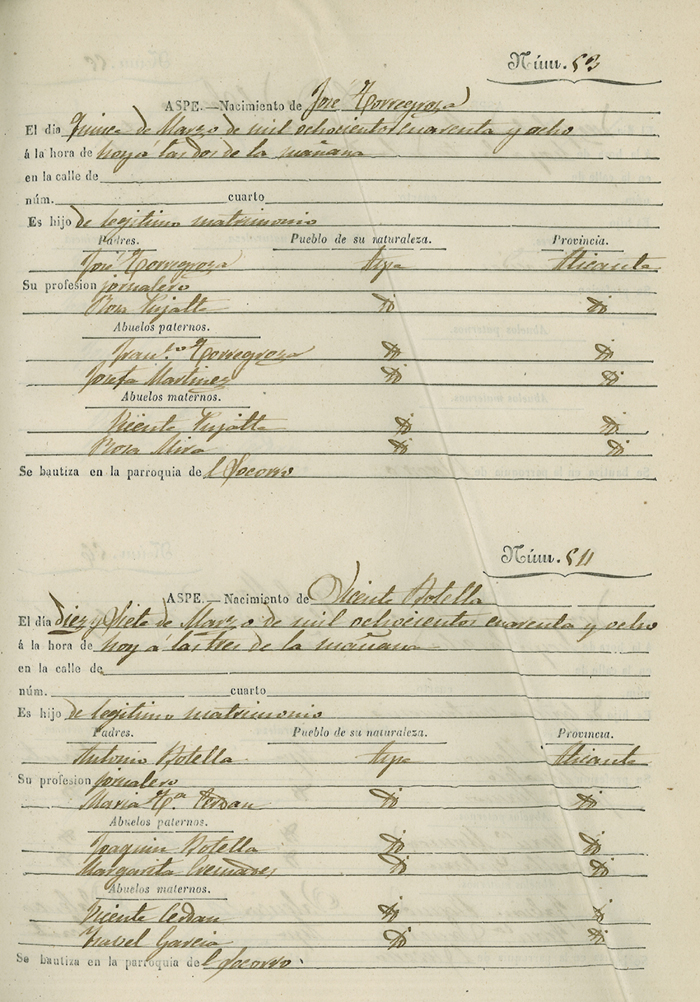 Núm. 53
ASPE.—Nacimiento de José Torregroza
El día Quince de Marzo de mil ochocientos cuarenta y ocho
á la hora de hoy á las dos de la mañana
en la calle de
núm. cuarto
Es hijo de legitimo matrimonio
Padres. Pueblo de su naturaleza. Provincia.
José Torregroza Aspe Alicante
Su profesion jornalero
Rosa Pujalte id id
Abuelos paternos.
Fran.co Torregroza id id
Josefa Martinez id id
Abuelos maternos.
Vicente Pujalte id id
Rosa Mira id id
Se bautiza en la parroquia del Socorro
Núm. 54
ASPE.—Nacimiento de Vicente Botella
El día diez y Siete de Marzo de mil ochocientos cuarenta y ocho
á la hora de hoy á las tres de la mañana
en la calle de
núm. cuarto
Es hijo de legitimo matrimonio
Padres. Pueblo de su naturaleza. Provincia.
Antonio Botella Aspe Alicante
Su profesion jornalero
Maria Cerdan id id
Abuelos paternos.
Joaquin Botella id id
Margarita id id
Abuelos maternos.
Vicente Cerdan id id
Ysabel Garcia id id
Se bautiza en la parroquia de el Socorro.